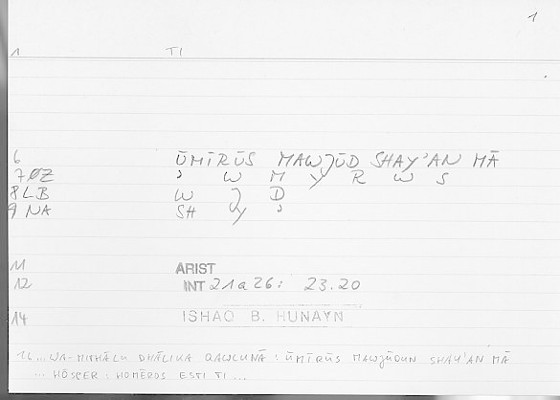 1
1 TI
6 ŪMĪRŪS MAWJŪD SHAY'AN MĀ
7 ØZ ' W M Y R W S
8 LB W J D
9 NA SH Y '
11 ARIST
12 INT 21a26: 23.20
14 ISHAQ B. HUNAYN
16 ...WA-MITHĀLU DHĀLIKA QAWLUNĀ: ŪMĪRŪS MAWJŪDUN SHAY'AN MĀ
... HŌSPER: HOMĒROS ESTI TI ...